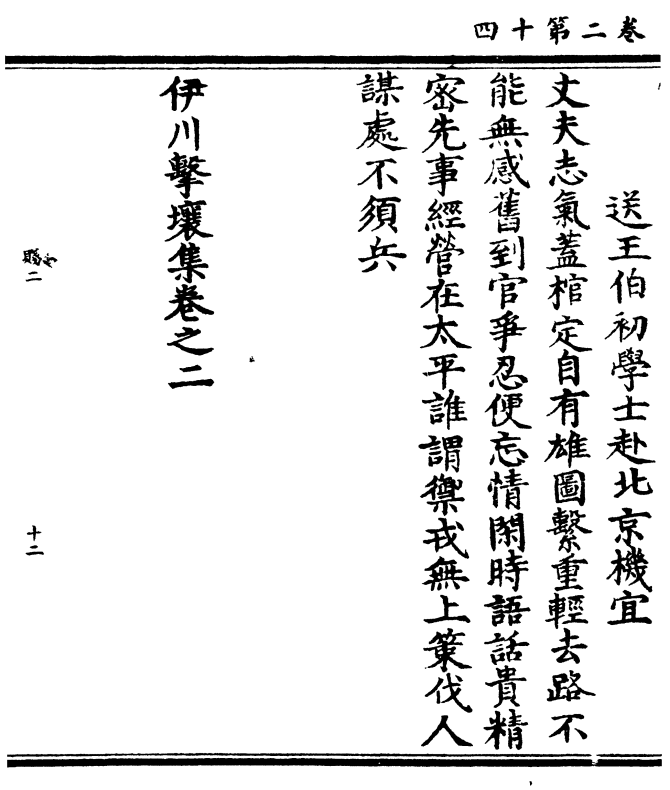 卷二第十四
送王伯初學士赴北京機宜
丈夫志氣蓋棺定自有雄圖繫重輕去路不
能無感舊到官爭忍便忘情閑時語話貴精
宻先事經營在太平誰謂禦戎無上策伐人
謀處不須兵
伊川擊壤集卷之二
十二